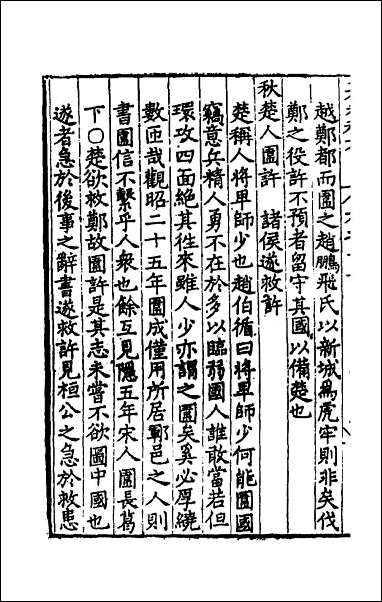 越鄭都而圍之趙鵬飛氏以新城為虎牢則非矣伐
鄭之役許不預者留守其國以備楚也
秋楚人圍許　諸侯遂救許
楚稱人將卑師少也趙伯循曰將卑師少何能圍國
竊意兵精人勇不在於多以臨弱國人誰敢當若但
環攻四面絕其往來雖人少亦謂之圍矣奚必厚繞
數匝哉觀昭二十五年圍成僅用所居鄆邑之人則
書圍信不繫乎人衆也餘互見隱五年宋人圍長葛
下○楚欲救鄭故圍許是其志未嘗不欲圖中國也
遂者急於後事之辭書遂救許見桓公之急於救患